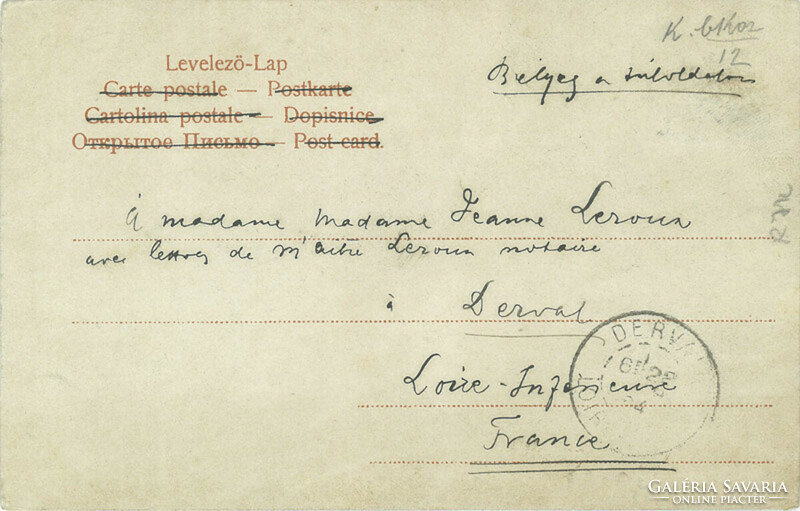 K.
12
Levelezö-Lap
Bélyeg a túloldalon
Carte postale — Postkarte
Cartolina postale — Dopisnice
Открытое Письмо — Post-card.
À madame Madame Jeanne Leroux
avec lettres de M'aitre Leroux notaire
à Derval
DERVAL
Loire-Inférieure
France
GALÉRIA SAVARIA
ONLINE PIACTÉR